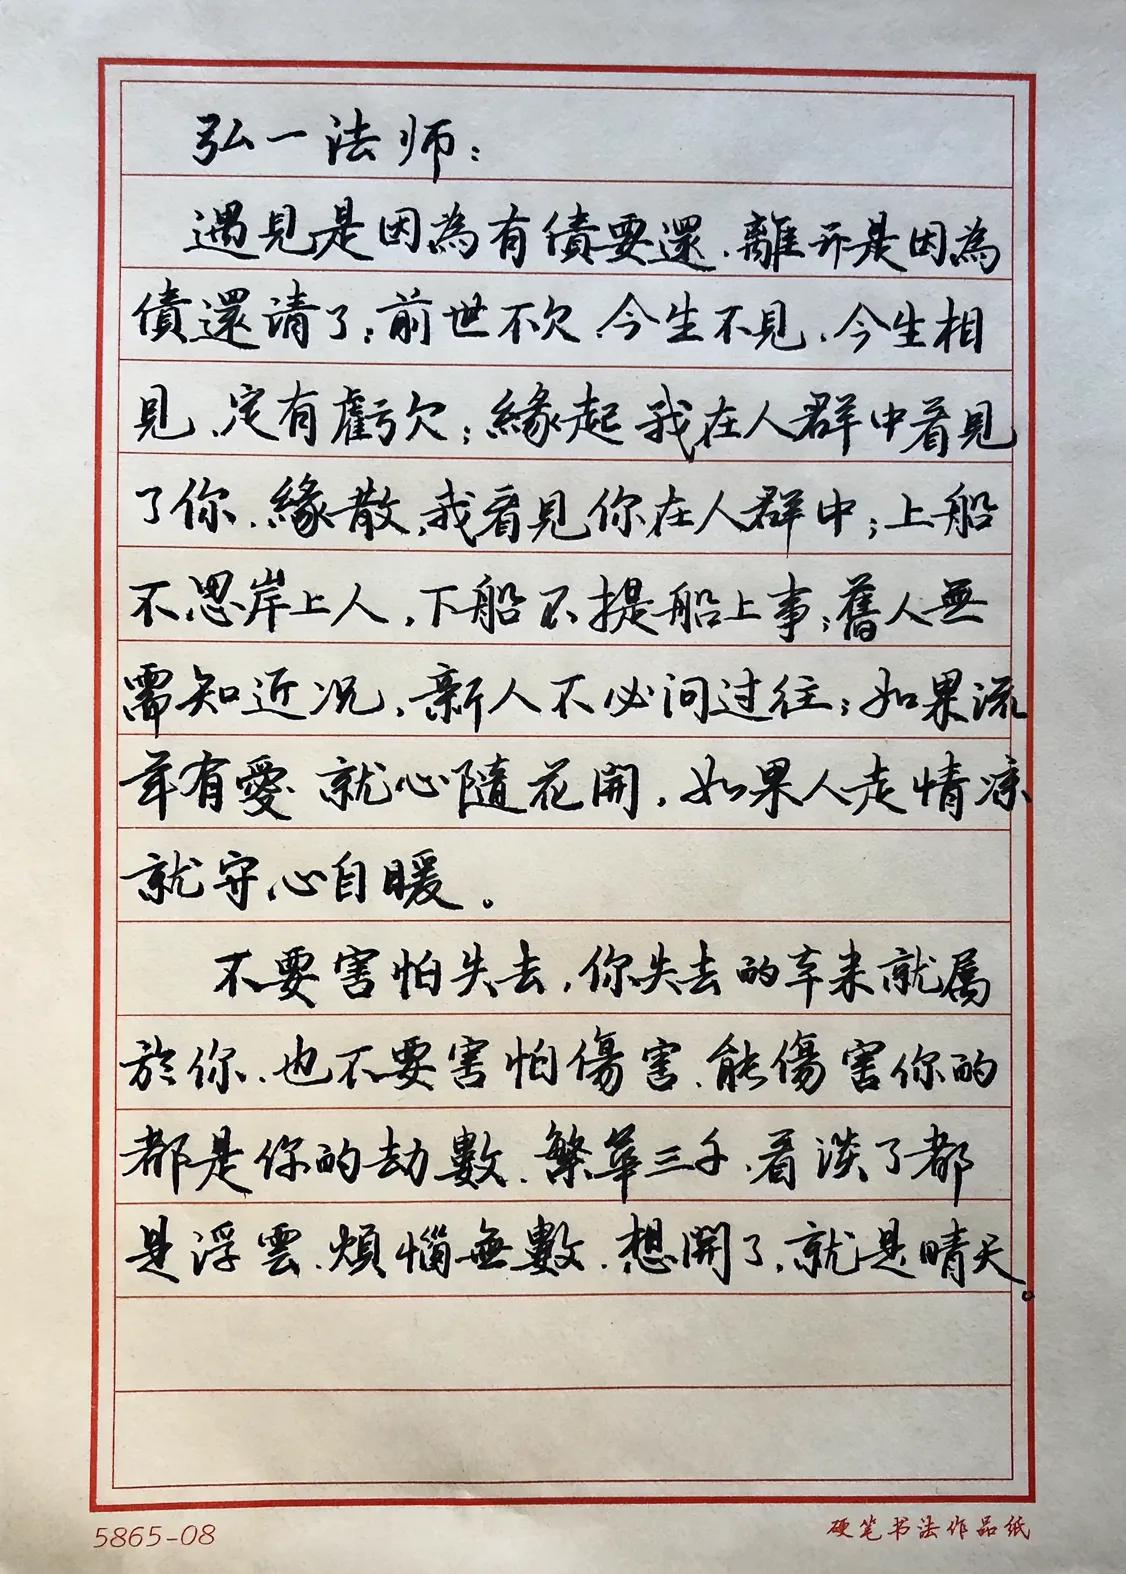 弘一法师：
遇見是因為有債要還、離开是因為
債還请了；前世不欠、今生不見、今生相
見、定有虧欠；緣起我在人群中看見
了你、緣散、我看見你在人群中；上船
不思岸上人，下船不提船上事；舊人無
需知近况，新人不必问过往；如果流
年有愛就心隨花開，如果人走情凉
就守心自暖。
不要害怕失去，你失去的本来就属
於你、也不要害怕傷害、能傷害你的
都是你的劫數、繁華三千、看淡了都
是浮雲、煩惱無數、想開了、就是晴天。
5865-08
硬笔书法作品纸